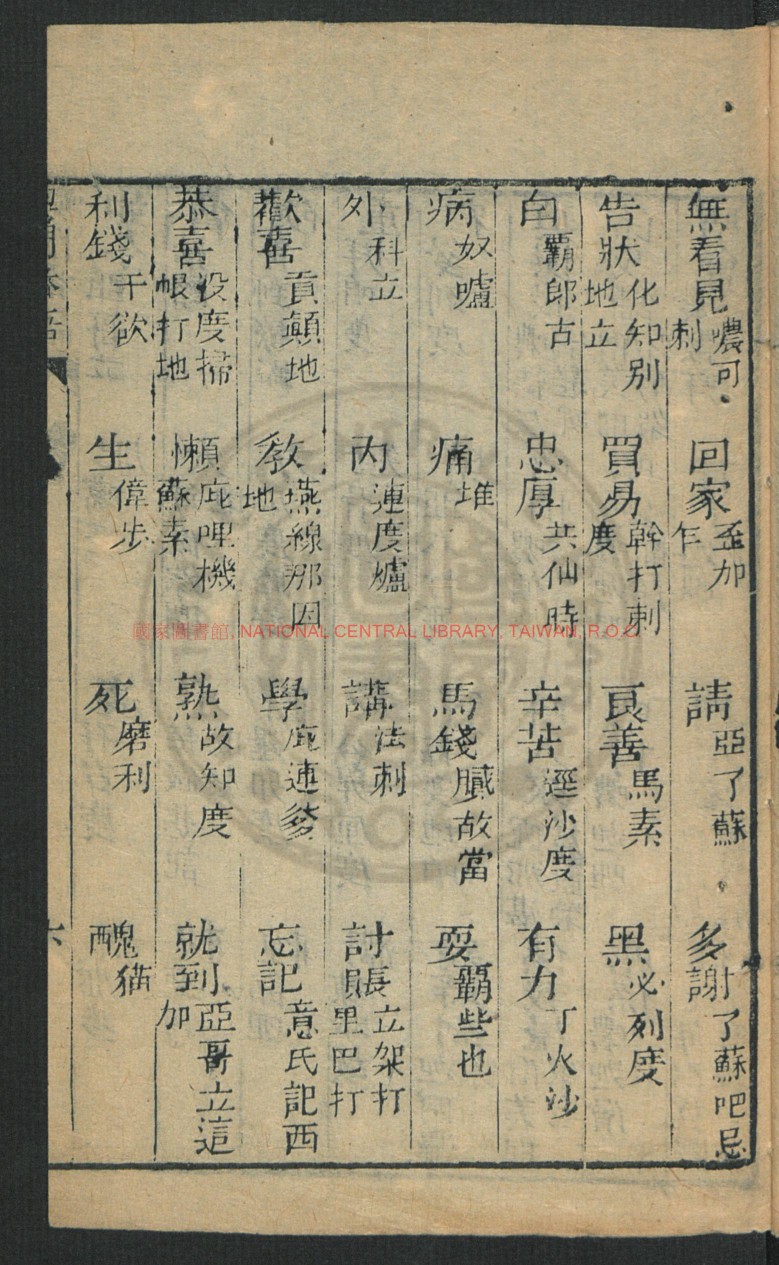 無看見 濃可刺 回家 歪加乍 請 亞了蘇 多謝 了蘇吧忌
告狀 化知別地立 買易 幹打刺度 良善 馬素 黑 必列度
白 霸郎古 忠厚 共仙時 辛苦 逕沙度 有力 丁火沙
病 奴嚧 痛 堆 馬錢 贓故當 耍 霸些也
外 科立 內 連度爐 講 法刺 討賬 立架打里巴打
歡喜 貢顛地 教 燕線那因地 學 庇連爹 忘記 意氏記西
恭喜 沒度掃悵打地 懶 庇哩機蘇素 熟 故知度 就到 亞哥立這加
利錢 干欲 生 偉步 死 磨利 醜 猫
六
國家圖書館, NATIONAL CENTRAL LIBRARY, TAIWAN, R.O.C